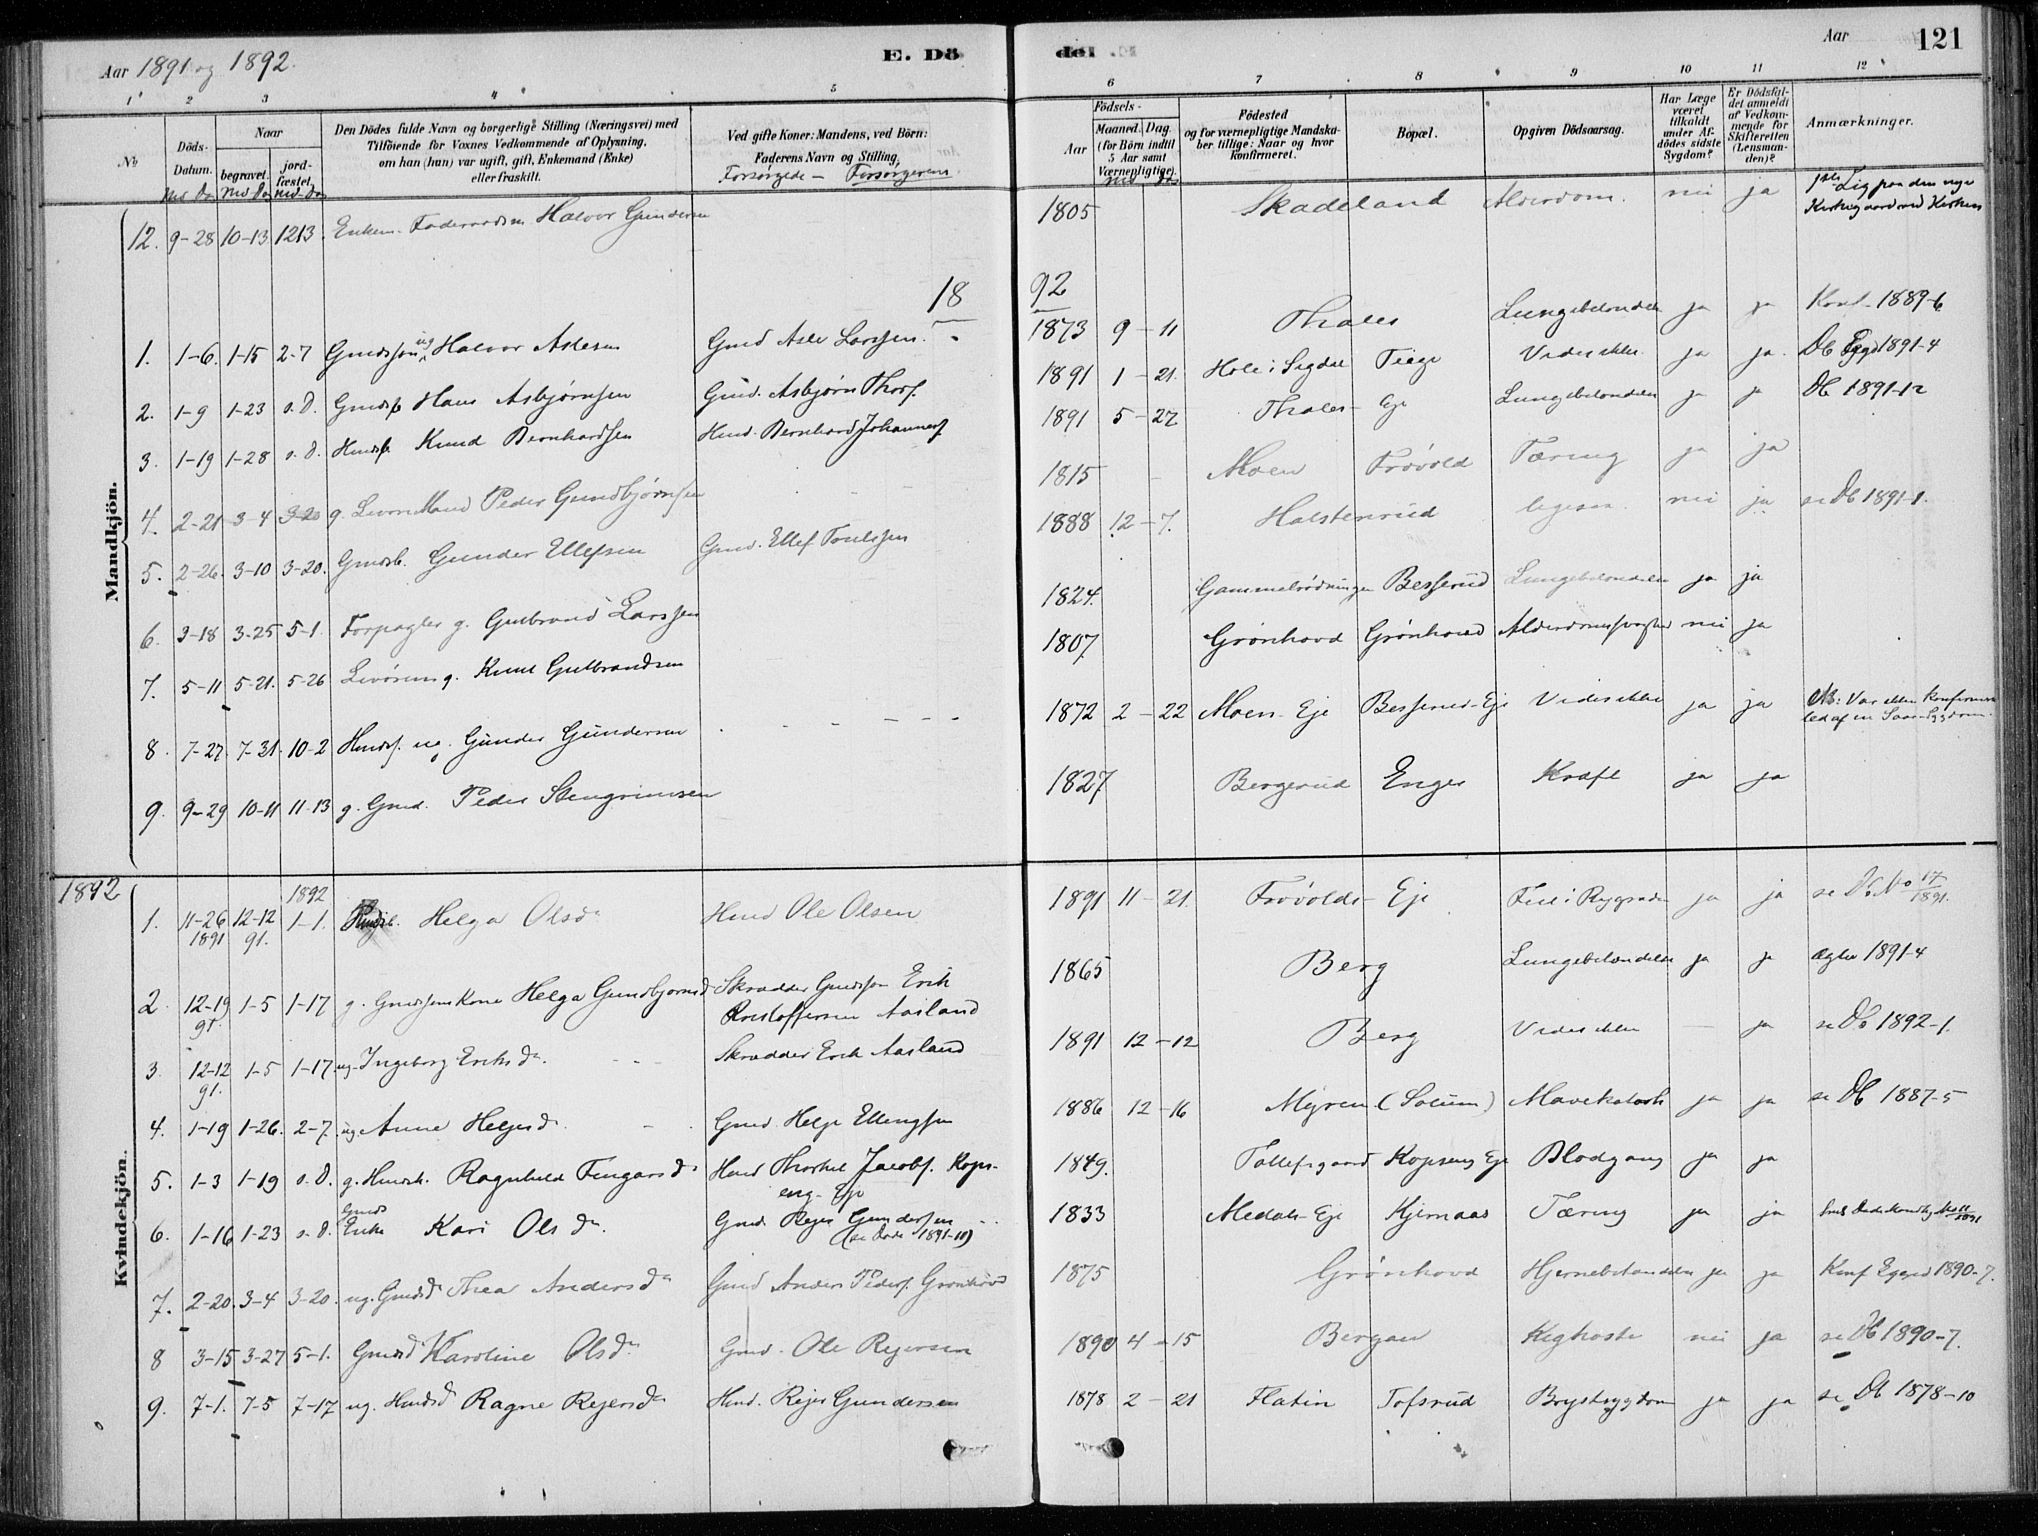 Aar 1891 og 1892.
E. Dö
del
Aar
121
1 2 3 4 5
6 7 8 9 10 11 12
No
Döds-Datum.
Naar
begravet.
jordfæstet.
Den Dödes fulde Navn og borgerlige Stilling (Næringsvei) med
Tilföiende for Voxnes Vedkommende af Oplysning,
om han (hun) var ugift, gift, Enkemand (Enke)
eller fraskilt.
Ved gifte Koner: Mandens, ved Börn:
Faderens Navn og Stilling.
Forsörgede — Forsörgerens
Födsels-
Aar
Maaned. Dag.
(for Börn indtil
5 Aar samt
Værnepligtige).
Födested
og for værnepligtige Mandskaber tillige: Naar og hvor
konfirmeret.
Bopæl.
Opgiven Dödsaarsag.
Har Læge
været
tilkaldt
under Afdödes sidste
Sygdom?
Er Dödsfaldet anmeldt
af Vedkommende for
Skifteretten
(Lensmanden)?
Anmærkninger.
Mandkjön.
12. 9-28 10-13 12 13. Halvor Gundersen 1805 Skadeland Alderdom. nei ja Lig paa den nye Kirkegaard ved Kirken
18 92
1. 1-6. 1-15 2-7 Gmdssøn ug Halvor Aslesen Gmd Asle Larssen. 1873 9-11 Thales Lungebetændelse ja ja Konf. 1889-6
2. 1-9 1-23 s.D. Gmdss Hans Asbjørnsen Gmd. Asbjørn Thors. 1891 1-21. Hole i Sigdal Teige Vides ikke ja ja. Db Eggd 1891-4
3. 1-19 1-28 s.D. Hmds. Knud Bernhardsen Hmd. Bernhard Johannes. 1891 5-27 Thales- Eje Lungebetændelse ja ja Db 1891-12
4. 2-21 3-4 3-20 g. Mand Peder Gundbjørnsen 1815 Moen Frøvold Tæring ja ja
5. 2-26. 3-10 3-20. Gmdsb. Gunder Ellefsen Gmd. Ellef 1888 12-7. Halstenrud ligesaa nei ja se Db 1891-1.
6. 3-18 3-25 5-1. Forpagter g. Gulbrand Larssen 1824. Besserud Lungebetændelse ja ja
7. 5-11 5-21. 5-26 g. Knut Gulbrandsen 1807 Grønhovd Grønhovd nei ja
8. 7-27 7-31 10-2 Hmds. ug. Gunder Gundersen 1872 2-22 Moen- Eje Besserud-Eje Vides ikke ja ja NB: Var ikke konfirmeret
9. 9-29 10-11 11-13 g. Gmd. Peder Stengrimsen 1827 Bergerud Enger Kræft ja ja
1892
Kvindekjön.
1. 11-26 1891 12-12 91. 1892 1-1. Helga Olsdr Hmd Ole Olsen 1891 11-21. Frøvolds- Eje Feil i Rygraden ja ja se Db No 17/1891.
2. 12-19 91. 1-5 1-17 g. Gmdssøns Kone Helga Gundbjørnsd Skrædder Gmdssøn Erik Kristoffersen Aasland 1865 Berg Lungebetændelse ja ja 1891-4
3. 12-12 91. 1-5 1-17. ug. Ingeborg Eriksdr. Skrædder Erik Aasland 1891 12-12 Berg Vides ikke — ja se Db 1892-1.
4. 1-19 1-26. 2-7. ug. Anne Helgesdr. Gmd Helge Ellingsen 1886 12-16 Myren (Solum) Mavekatarh ja ja se Db 1887-5
5. 1-3 1-19 s.D. g. Hmdsk. Ragnhild Fingarsdr Hmd Thorkel Jacobs. Kopseng-Eje 1849. Tollefsgaard Kopseng Eje Blodgang ja ja
6. 1-16 1-23 s.D. Gmds Enke Kari Olsdr. Gmd. Rejer Gundersen (se Døde 1891-10) 1833 Medals- Eje Kjernaas Tæring ja ja
7. 2-20. 3-4 3-20. ug. Gmdsd Thea Andersdr Gmd Anders Peders. Grønhovd 1875 Grønhovd Hjernebetændelse ja ja Konf Eggd 1890-7.
8 3-15 3-27 5-1. Gmdsd Karoline Olsdr Gmd. Ole Rejersen 1890 4-15 Bergan Kighoste nei ja se Db 1890-7.
9. 7-1. 7-5 7-17 ug. Hmdsd Ragne Rejersdr Hmd. Rejer Gundersen 1878 2-21 Flatin Tofsrud Brystsygdom ja ja se Db 1878-10